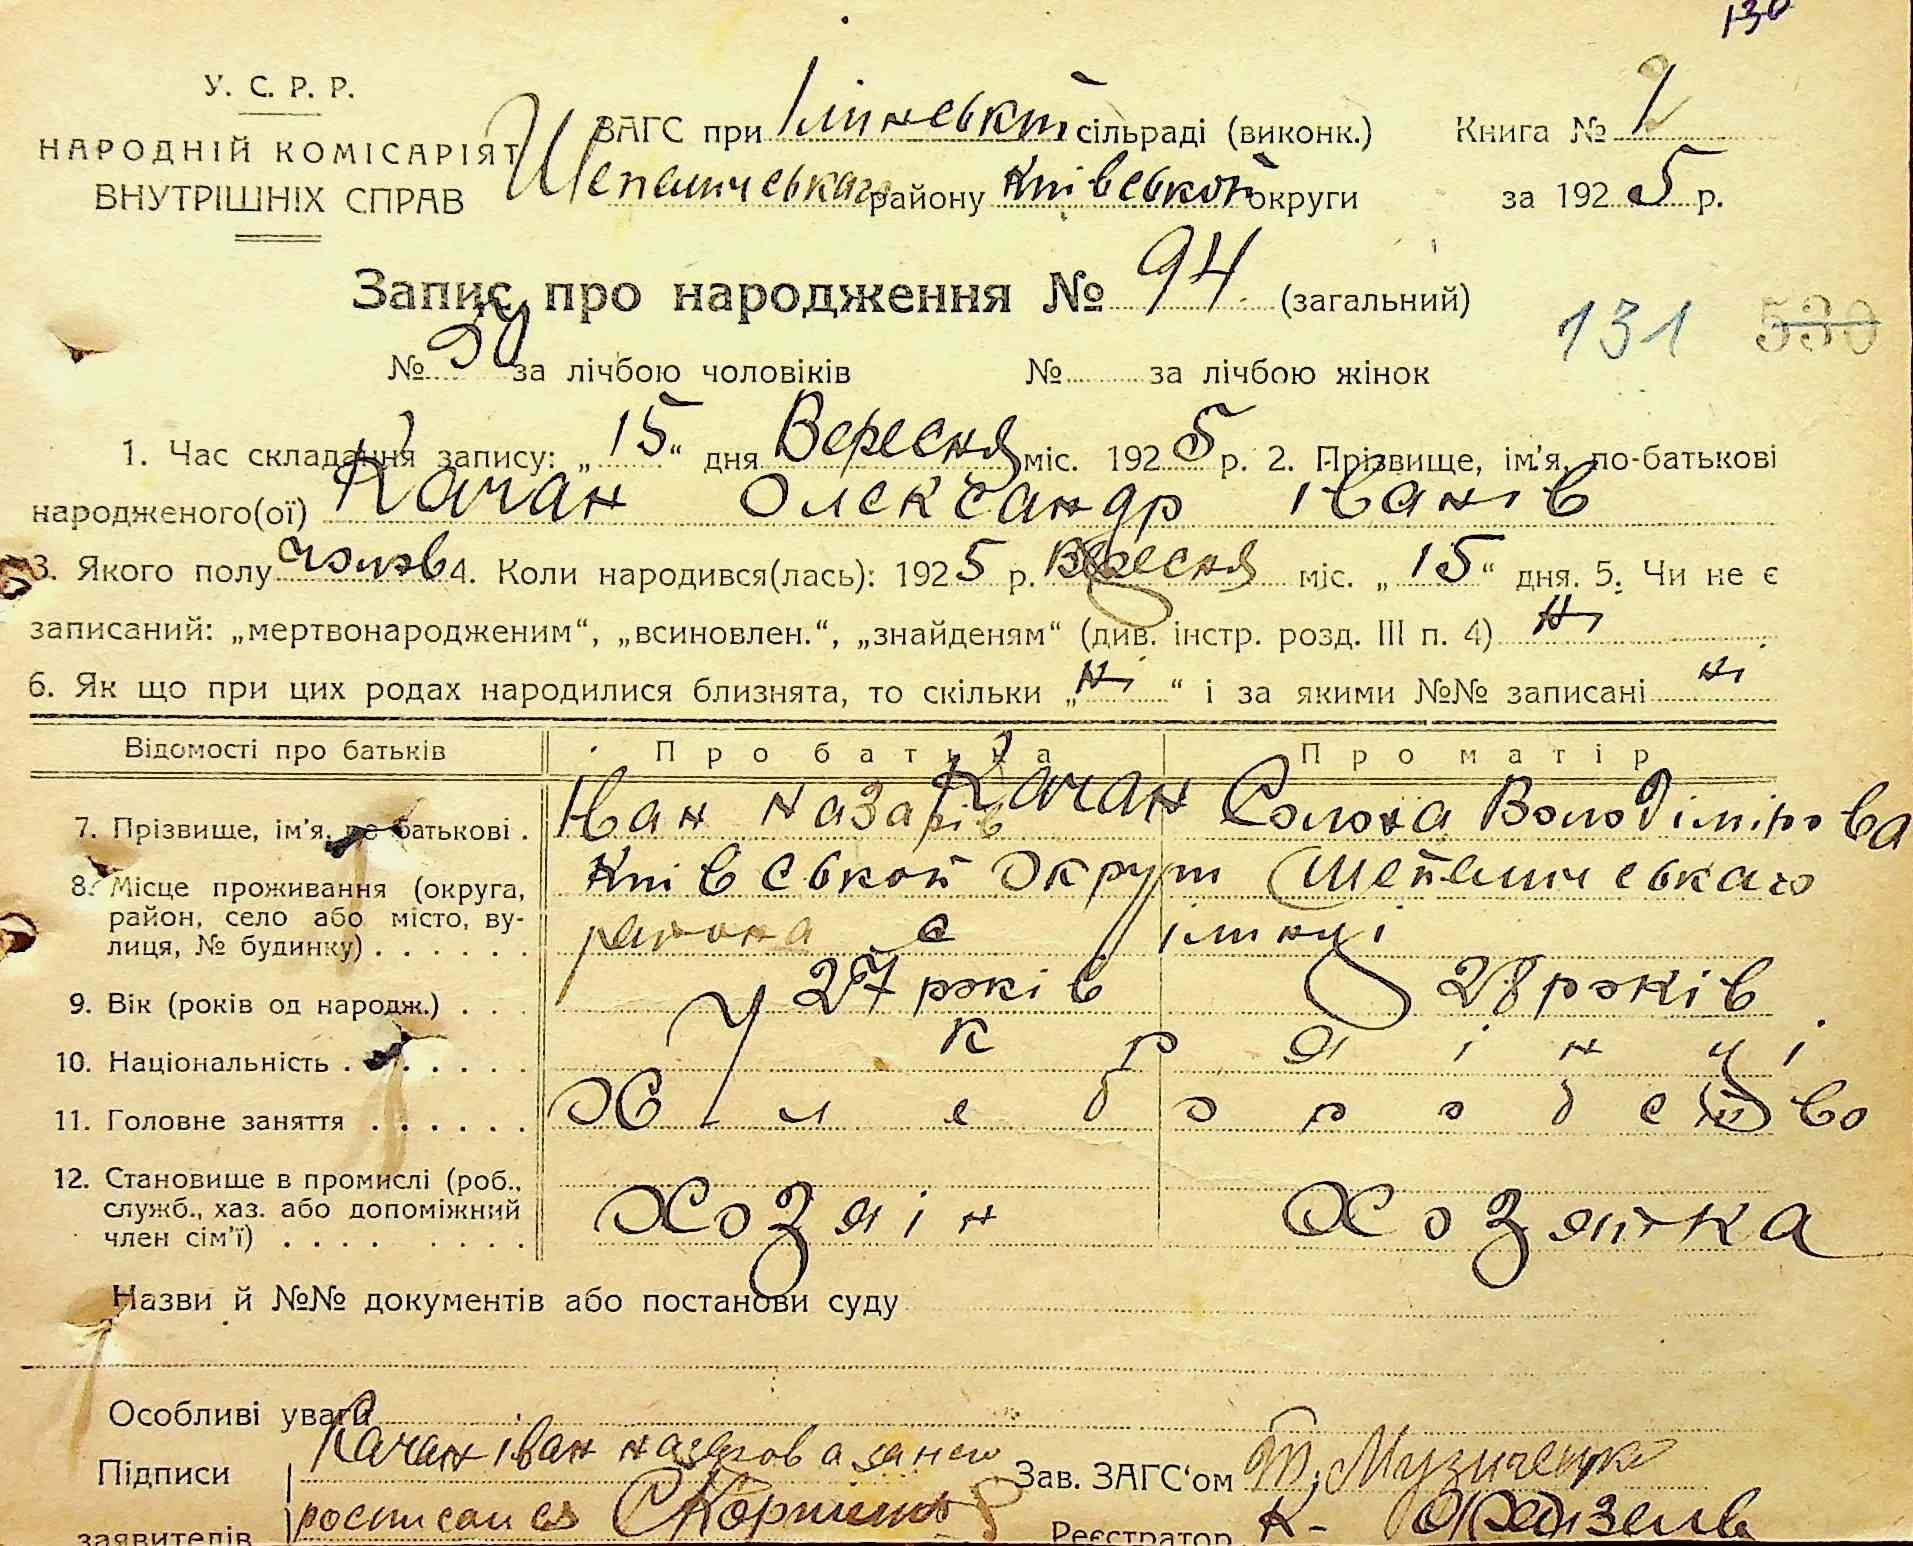 130
У. С. Р. Р.
НАРОДНІЙ КОМІСАРІЯТ
ВНУТРІШНІХ СПРАВ
ЗАГС при Ілінській сільраді (виконк.) Книга № 2
Шепеличського району Київської округи за 1925 р.
Запис про народження № 94 (загальний)
131 530
№ 50 за лічбою чоловіків № за лічбою жінок
1. Час складання запису: „15“ дня Вересня міс. 1925 р. 2. Прізвище, ім'я, по-батькові
народженого(ої) Качан Олександр Іванів
3. Якого полу чолов 4. Коли народився(лась): 1925 р. Вересня міс. „15“ дня. 5. Чи не є
записаний: „мертвонародженим“, „всиновлен.“, „знайденям“ (див. інстр. розд. III п. 4) ні
6. Як що при цих родах народилися близнята, то скільки „ні“ і за якими №№ записані ні
Відомості про батьків Про батька Про матір
7. Прізвище, ім'я, по батькові. Іван Назарів Качан Солоха Володімірова
8. Місце проживання (округа, район, село або місто, вулиця, № будинку) Київської Округи Шепеличського
района с Ілинці
9. Вік (років од народж.) 27 років 28 років
10. Національність Украінці
11. Головне заняття Хлеборобство
12. Становище в промислі (роб., служб., хаз. або допоміжний член сім'ї) Хозяін Хозяйка
Назви й №№ документів або постанови суду
Особливі уваги
Підписи Качан Іван Назаров а за него Зав. ЗАГС'ом Музиченко
заявителів росписался Реєстратор К-